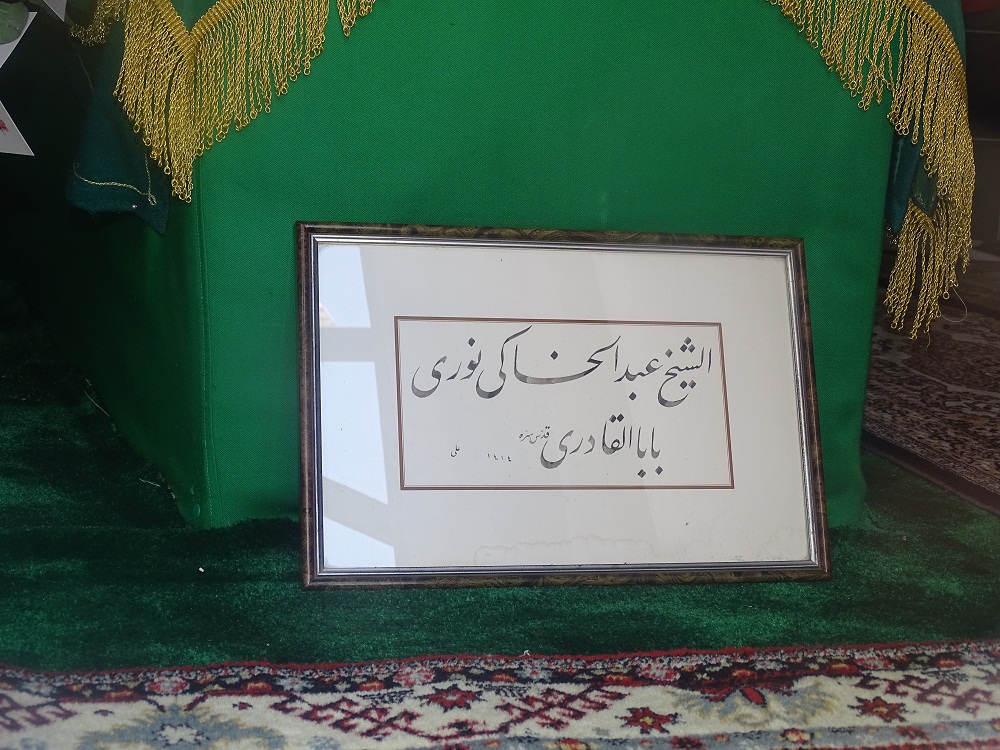 الشيخ عبد الخاكى نورى
بابا القادرى قدس سره
١٤١٤ على